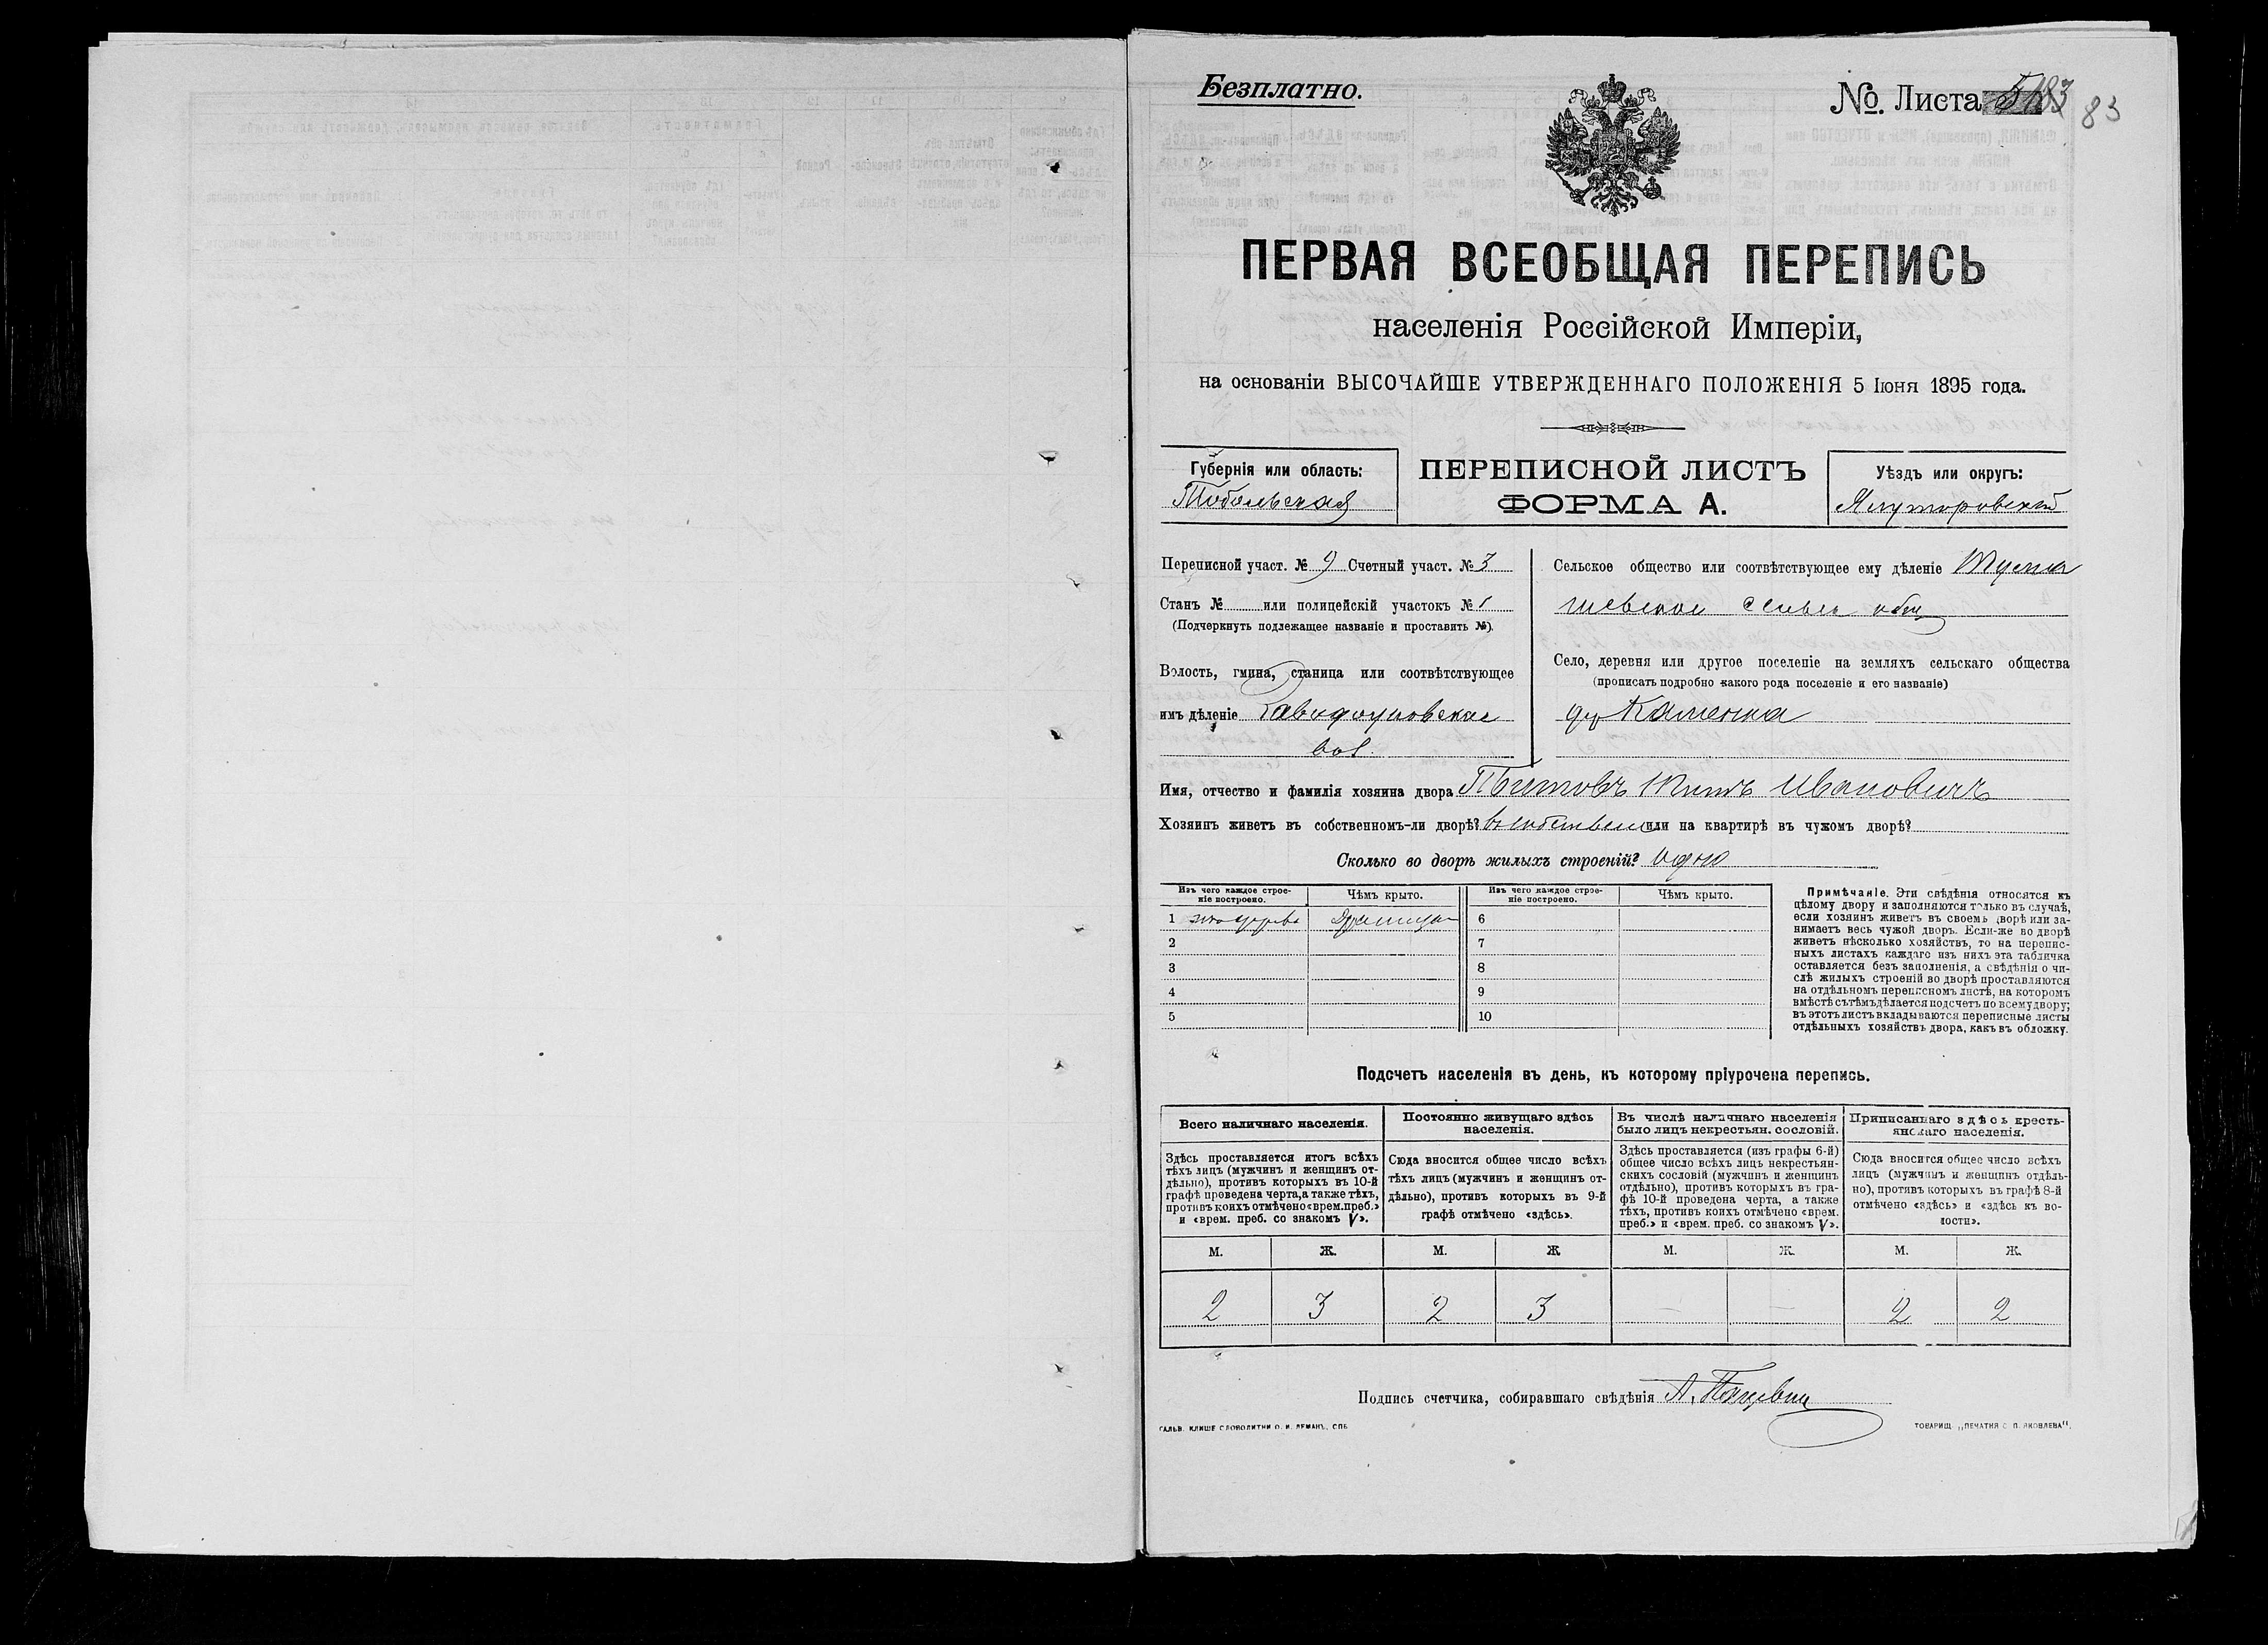 Безплатно.
№ Листа 83
ПЕРВАЯ ВСЕОБЩАЯ ПЕРЕПИСЬ
населенія Россійской Имперіи,
на основаніи ВЫСОЧАЙШЕ УТВЕРЖДЕННАГО ПОЛОЖЕНІЯ 5 Іюня 1895 года.
Губернія или область:
Тобольская
ПЕРЕПИСНОЙ ЛИСТЪ
ФОРМА А.
Уѣздъ или округъ:
Ялуторовский
Переписной участ. № 9 Счетный участ. № 3
Станъ № или полицейскій участокъ № 1
(Подчеркнуть подлежащее названіе и проставить №).
Волость, гмина, станица или соотвѣтствующее
имъ дѣленіе
вол.
Сельское общество или соотвѣтствующее ему дѣленіе
общ
Село, деревня или другое поселеніе на земляхъ сельскаго общества
(прописать подробно какого рода поселеніе и его названіе)
дер Каменка
Имя, отчество и фамилія хозяина двора Титовъ Ивановичъ
Хозяинъ живетъ въ собственномъ-ли дворѣ? въ собствен или на квартирѣ въ чужомъ дворѣ?
Сколько во дворѣ жилыхъ строеній? одно
Изъ чего каждое строе-
ніе построено.
Чѣмъ крыто.
Изъ чего каждое строе-
ніе построено.
Чѣмъ крыто.
1 изъ дерева
6
2
7
3
8
4
9
5
10
Примѣчаніе. Эти свѣдѣнія относятся къ
цѣлому двору и заполняются только въ случаѣ,
если хозяинъ живетъ въ своемъ дворѣ или за-
нимаетъ весь чужой дворъ. Если-же во дворѣ
живетъ нѣсколько хозяйствъ, то на перепис-
ныхъ листахъ каждаго изъ нихъ эта табличка
оставляется безъ заполненія, а свѣдѣнія о чи-
слѣ жилыхъ строеній во дворѣ проставляются
на отдѣльномъ переписномъ листѣ, на которомъ
вмѣстѣ съ тѣмъ дѣлается подсчетъ по всему двору;
въ этотъ листъ вкладываются переписные листы
отдѣльныхъ хозяйствъ двора, какъ въ обложку.
Подсчетъ населенія въ день, къ которому пріурочена перепись.
Всего наличнаго населенія.
Здѣсь проставляется итогъ всѣхъ
тѣхъ лицъ (мужчинъ и женщинъ от-
дѣльно), противъ которыхъ въ 10-й
графѣ проведена черта, а также тѣхъ,
противъ коихъ отмѣчено «врем. преб.»
и «врем. преб. со знакомъ V».
Постоянно живущаго здѣсь
населенія.
Сюда вносится общее число всѣхъ
тѣхъ лицъ (мужчинъ и женщинъ от-
дѣльно), противъ которыхъ въ 9-й
графѣ отмѣчено «здѣсь».
Въ числѣ наличнаго населенія
было лицъ некрестьян. сословій.
Здѣсь проставляется (изъ графы 6-й)
общее число всѣхъ лицъ некрестьян-
скихъ сословій (мужчинъ и женщинъ
отдѣльно), противъ которыхъ въ гра-
фѣ 10-й проведена черта, а также
тѣхъ, противъ коихъ отмѣчено «врем.
преб.» и «врем. преб. со знакомъ V».
Приписаннаго здѣсь кресть-
янскаго населенія.
Сюда вносится общее число всѣхъ
лицъ (мужчинъ и женщинъ отдѣль-
но), противъ которыхъ въ графѣ 8-й
отмѣчено «здѣсь» и «здѣсь къ во-
лости».
М. Ж. М. Ж М. Ж. М. Ж.
2 3 2 3 — — 2 2
Подпись счетчика, собиравшаго свѣдѣнія А.
ГАЛЬВ. КЛИШЕ СЛОВОЛИТНИ О. И. ЛЕМАНЪ, СПБ.
ТОВАРИЩ. „ПЕЧАТНЯ С. П. ЯКОВЛЕВА".